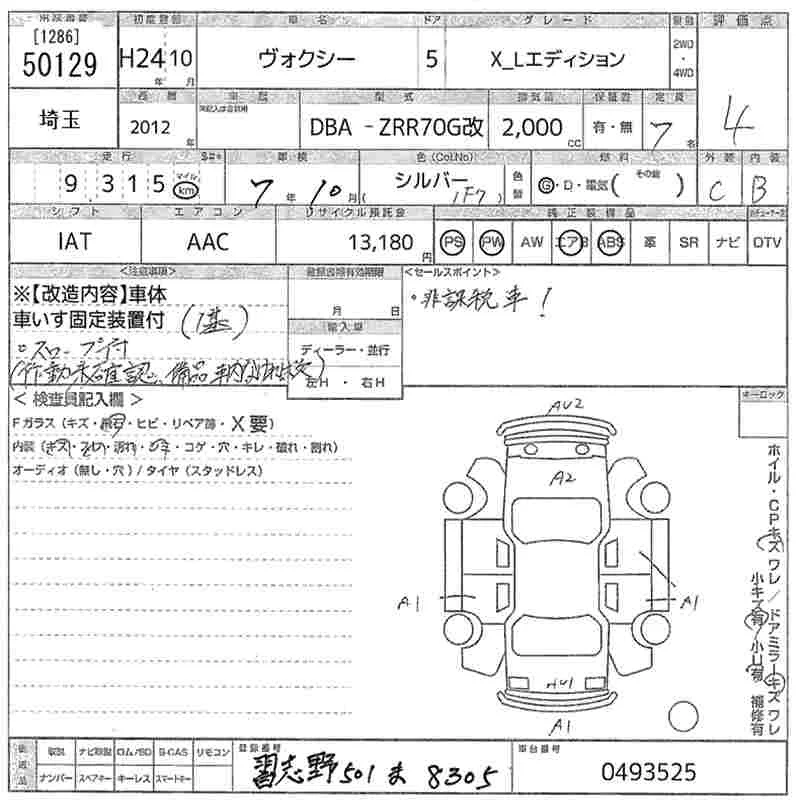 出品番号 初度登録 車名 ドア グレード 駆動 評価点
[1286]
50129 H24年 10月 ヴォクシー 5 X_Lエディション 2WD・4WD 4
埼玉
西暦 車歴 型式 排気量 保証書 定員
2012年 DBA -ZRR70G改 2,000cc 有・無 7名
走行 車検 色(Col.No) 燃料 外装 内装
9 3 1 5 マイル km 7年10月 シルバー (1F7) 色替 G・D・電気( その他 ) C B
シフト エアコン リサイクル預託金 純正装備品
IAT AAC 13,180円 PS PW AW エアB ABS 革 SR ナビ DTV
<注意事項> <セールスポイント>
※【改造内容】車体 月 日 ・非課税車!
車いす固定装置付 (1基) 輸入車
。スロープ付 ディーラー・並行
(作動未確認、備品 左H ・ 右H
< 検査員記入欄 > キーロック
Fガラス(キズ・飛石・ヒビ・リペア跡・X要)
内装(キズ・汚れ・コゲ・穴・キレ・破れ・割れ)
オーディオ(無し・穴)/タイヤ(スタッドレス)
AU2
A2
A1
A1
AU1
A1
ホイル・CPキズ ワレ / ドアミラーキズ ワレ
小キズ有/小U有 補修有
後送品 取説 ナビ取説 ロム/SD B-CAS リモコン 登録番号 車台番号
ナンバー スペアキー キーレス スマートキー 習志野501ま 8305 0493525